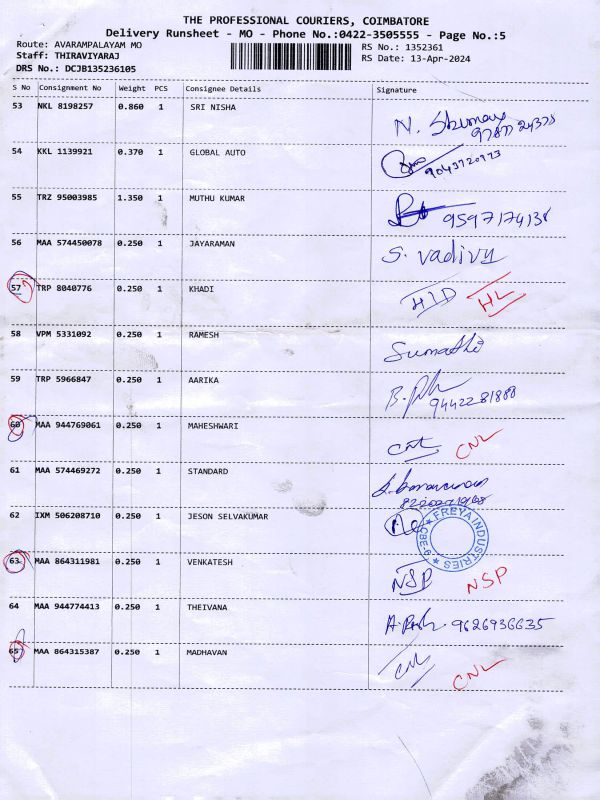 THE PROFESSIONAL COURIERS, COIMBATORE
Delivery Runsheet - MO - Phone No.:0422-3505555 - Page No.:5
Route: AVARAMPALAYAM MO
RS No.: 1352361
Staff: THIRAVIYARAJ
RS Date: 13-Apr-2024
DRS No.: DCJB135236105
S No Consignment No Weight PCS Consignee Details Signature
53 NKL 8198257 0.860 1 SRI NISHA
N.
54 KKL 1139921 0.370 1 GLOBAL AUTO
55 TRZ 95003985 1.350 1 MUTHU KUMAR
9597174138
56 MAA 574450078 0.250 1 JAYARAMAN
S. Vadivu
57 TRP 8040776 0.250 1 KHADI
HL
58 VPM 5331092 0.250 1 RAMESH
Sumathi
59 TRP 5966847 0.250 1 AARIKA
9442281888
60 MAA 944769061 0.250 1 MAHESHWARI
CNL CNL
61 MAA 574469272 0.250 1 STANDARD
62 IXM 506208710 0.250 1 JESON SELVAKUMAR
FREYA INDUSTRIES
CBE-9
63 MAA 864311981 0.250 1 VENKATESH
NSP NSP
64 MAA 944774413 0.250 1 THEIVANA
9626936635
65 MAA 864315387 0.250 1 MADHAVAN
CNL CNL